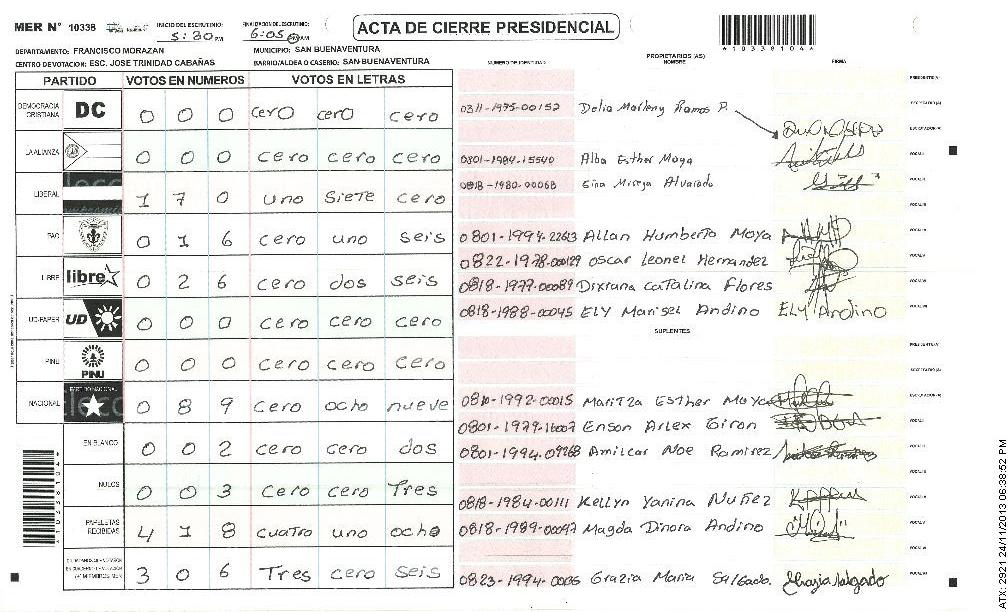 MER N° 10338 INICIO DEL ESCRUTINIO: 5:30 PM FINALIZACION DEL ESCRUTINIO: 6:05 PM AM
ACTA DE CIERRE PRESIDENCIAL
*10338104*
DEPARTAMENTO: FRANCISCO MORAZAN MUNICIPIO: SAN BUENAVENTURA
CENTRO DE VOTACION: ESC. JOSE TRINIDAD CABAÑAS BARRIO/ALDEA O CASERIO: SAN BUENAVENTURA
NUMERO DE IDENTIDAD PROPIETARIOS (AS) NOMBRE FIRMA
PARTIDO VOTOS EN NUMEROS VOTOS EN LETRAS
DEMOCRACIA CRISTIANA DC 0 0 0 cero cero cero 0311-1975-00152 Delia Marleny Ramos P.
LA ALIANZA 0 0 0 cero cero cero 0801-1984-15540 Alba Esther Moya
LIBERAL 1 7 0 uno siete cero 0818-1980-00068 Gina Mireya Alvarado
PAC 0 1 6 cero uno seis 0801-1994-22613 Allan Humberto Moya
0822-1978-00129 Oscar Leonel Hernandez
LIBRE libre 0 2 6 cero dos seis 0818-1977-00089 Dixiana Catalina Flores
UD-FAPER UD 0 0 0 cero cero cero 0818-1988-00045 ELY Marisel Andino ELY Andino
SUPLENTES
PINU PINU 0 0 0 cero cero cero
NACIONAL PARTIDO NACIONAL 0 8 9 cero ocho nueve 0810-1992-00015 Maritza Esther Moya
0801-1979-16007 Enson Arlex Giron
EN BLANCO 0 0 2 cero cero dos 0801-1994-09268 Amilcar Noe Ramirez
NULOS 0 0 3 cero cero Tres 0818-1984-00111 Kellyn Yanina Nuñez
PAPELETAS RECIBIDAS 4 1 8 cuatro uno ocho 0818-1989-00097 Magda Dinora Andino
3 0 6 Tres cero seis 0823-1994-00036 Grazia Maria Salgado. Grazia Salgado
ATX: 2921 24/11/2013 06:38:52 PM